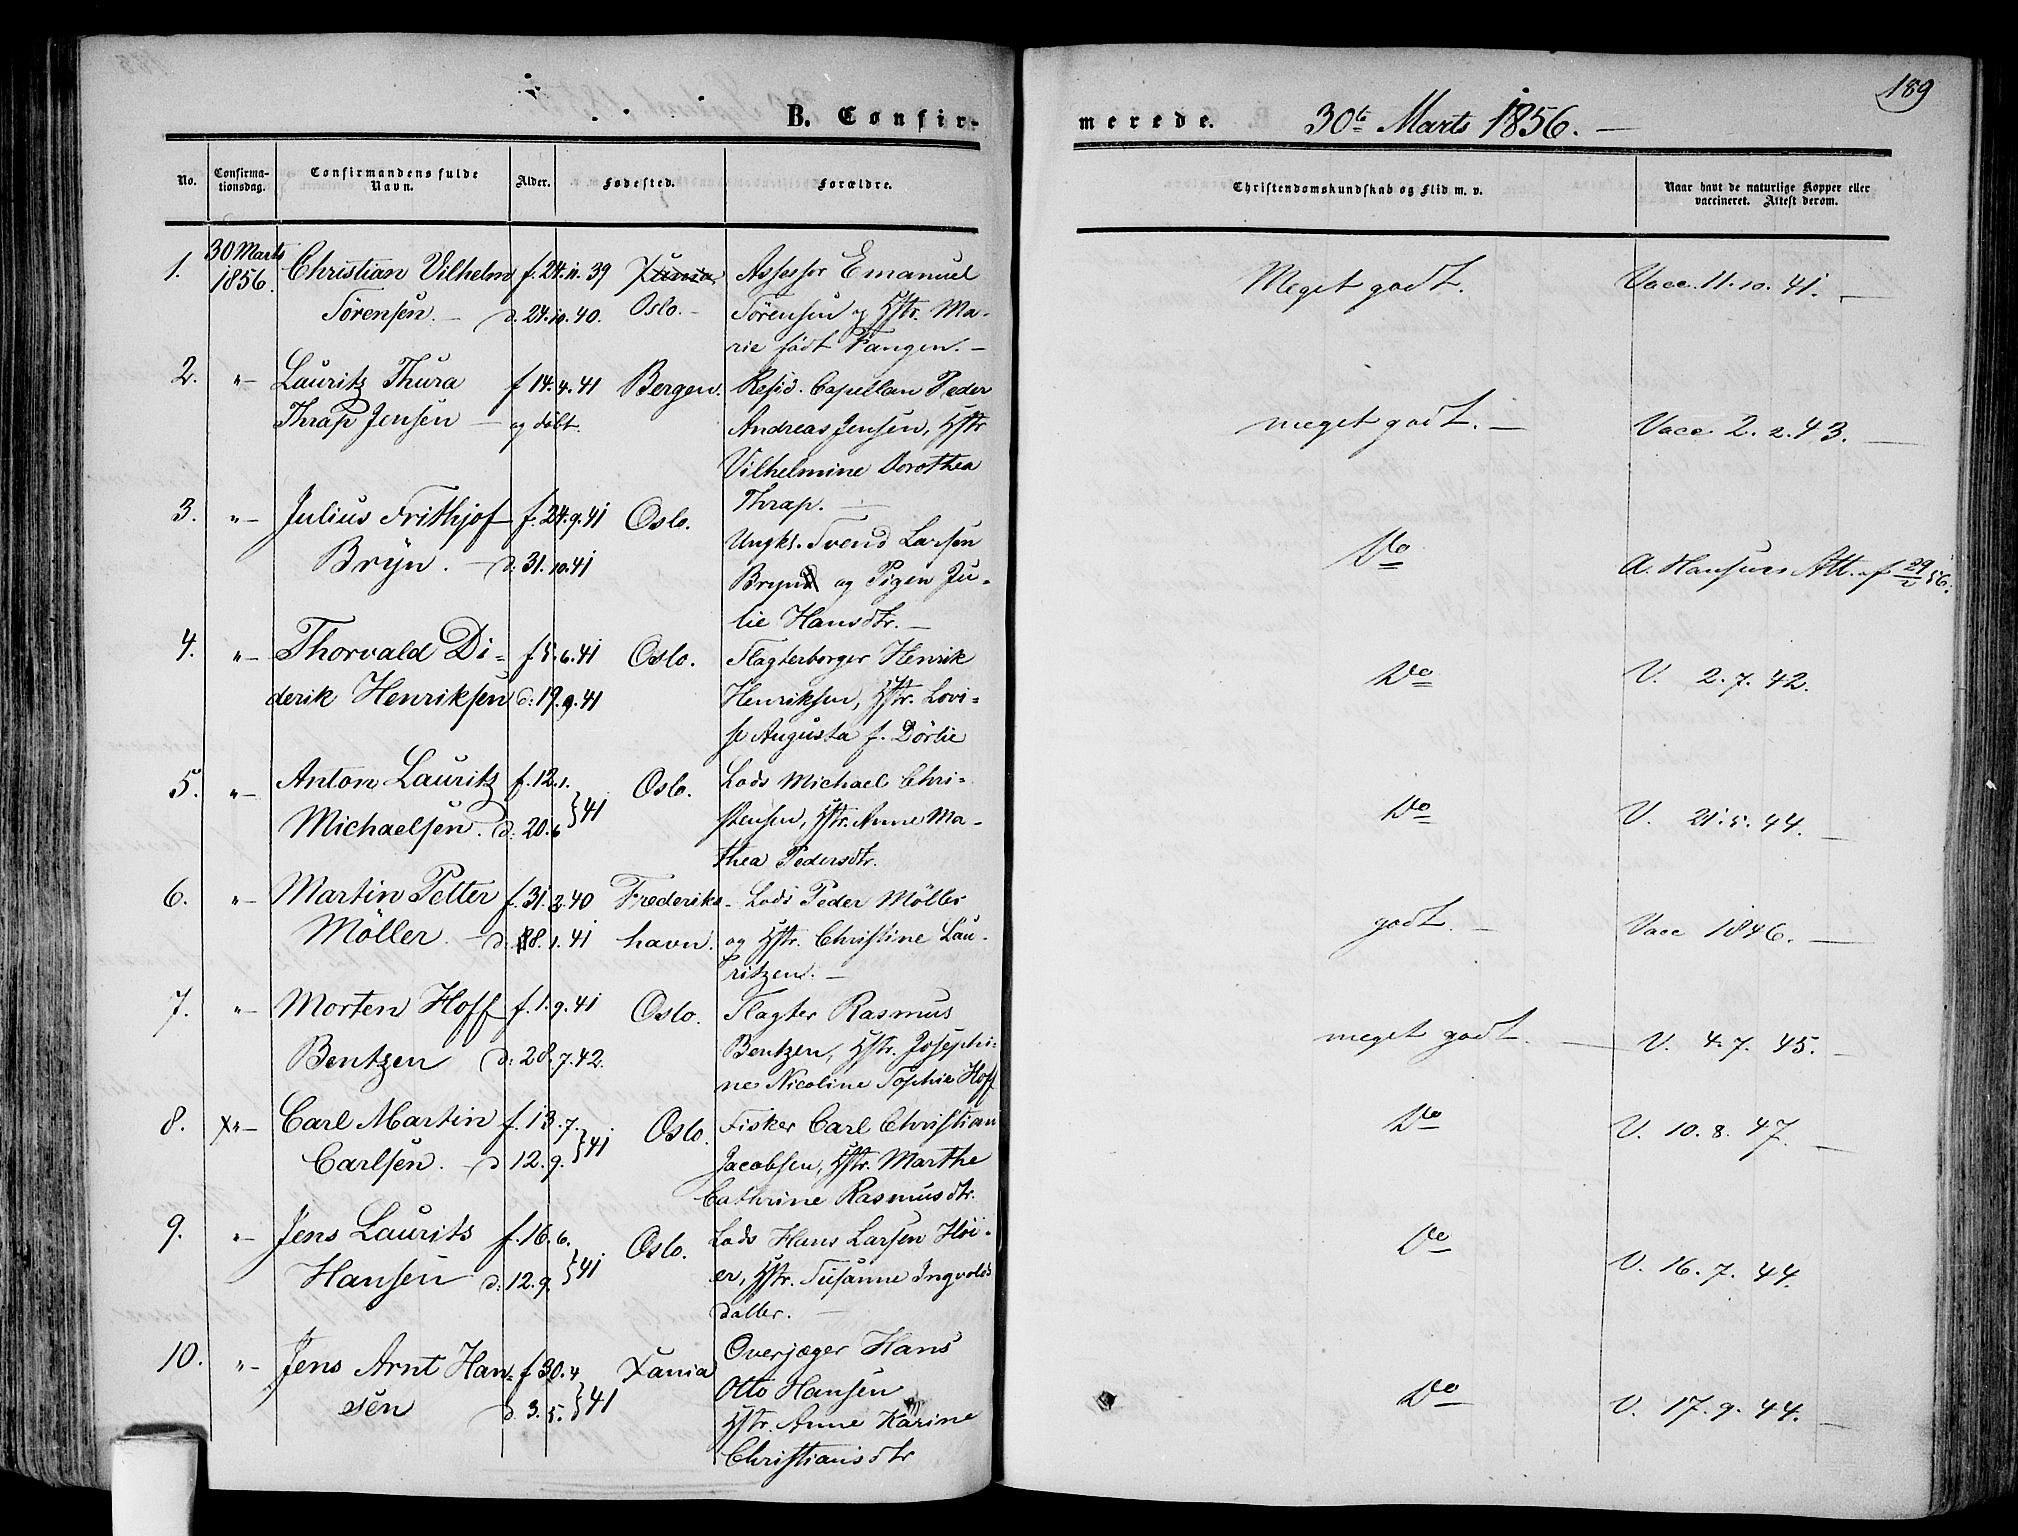 189
B. Confir-
merede. 30te Marts 1856. —
No. Confirma-tionsdag. Confirmandens fulde Navn. Alder. Fødested. Forældre. Christendomskundskab og Flid m. v. Naar havt de naturlige Kopper eller vaccineret. Attest derom.
1. 30 Marts Christian Vilhelm f. 24. 11. 39 Xania Assessor Emanuel Meget godt. Vacc. 11. 10. 41. —
1856. Sörensen. — d. 24. 10. 40. Oslo. — Sörensen og Hstr. Ma-
rie födt Fangen. —
2. "— Lauritz Thura f 14. 4. 41 Bergen. Resid. Capellan Peder meget godt. — Vacc 2. 2. 43. —
Thrap Jensen — og döbt. Andreas Jensen, Hstr
Vilhelmine Dorothea
Thrap. —
3. "— Julius Frithjof f. 24. 9. 41 Oslo. Ungks. Svend Larsen Do A. Hansens Att. af 29/2 56.
Bryn. — d. 31. 10. 41 Bryn og Pigen Ju-
lie Hansdtr. —
4. "— Thorvald Di- f 5. 6. 41 Oslo. Slagterborger Henrik Do V. 2. 7. 42.
derik Henriksen d. 19. 9. 41 Henriksen, Hstr. Lovi-
se Augusta f. Dörlie
5. "— Anton Lauritz f. 12. 1. } 41 Oslo. Lods Michael Chri- Do V. 21. 5. 44. —
Michaelsen. d. 20. 6 stensen, Hstr. Anne Ma-
thea Pedersdtr.
6. "— Martin Petter f. 31. 3. 40 Frederiks- Lods Peder Möller godt. — Vacc 1846. —
Möller. — d. 8. 1. 41 havn. og Hstr. Christine Lau-
ritzen. —
7. "— Morten Hoff f. 1. 9. 41 Oslo. Slagter Rasmus meget godt. — V. 4. 7. 45. —
Bentzen d. 28. 7. 42. Bentzen, Hstr. Josephi-
ne Nicoline Sophie Hoff
8. X "— Carl Martin f. 13. 7. } 41 Oslo. Fisker Carl Christian Do V. 10. 8. 47. —
Carlsen. — d 12. 9. Jacobsen, Hstr. Marthe
Cathrine Rasmusdtr.
9. "— Jens Laurits f. 16. 6. } 41 Oslo. Lods Hans Larsen Höi- Do V. 16. 7. 44.
Hansen d. 12. 9. er, Hstr. Susanne Ingvolds
datter. —
10. "— Jens Arnt Han- f 30. 4 } 41 Xania Overjæger Hans Do V. 17. 9. 44. —
sen d. 3. 5. Otto Hansen
Hstr. Anne Karine
Christiansdtr